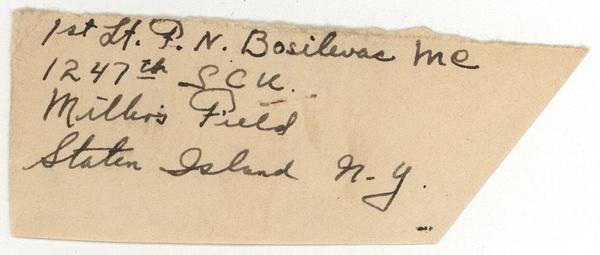 1st Lt. P. N. Bosilevac MC
1247th S C U.
Miller's Field
Staten Island N-Y.